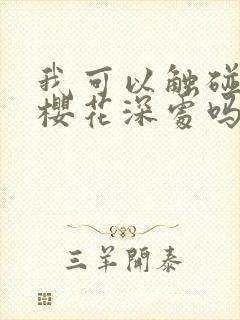 我可以触碰
櫻花深處吗
三羊開泰